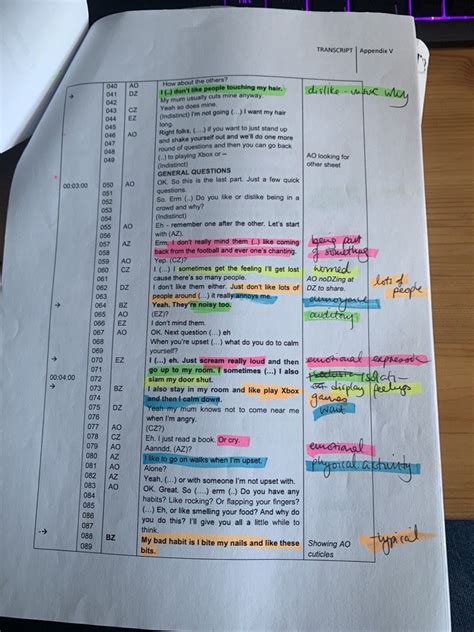 TRANSCRIPT | Appendix V
How about the others?
040 AO I (..) don't like people touching my hair. dislike
→ 041 DZ My mum usually cuts mine anyway.
042 Yeah so does mine.
043 CZ (Indistinct) I'm not going (...) I want my hair
044 EZ long.
045 Right folks, (....) if you want to just stand up
046 AO and shake yourself out and we'll do one more
047 round of questions and then you can go back
048 (..) to playing Xbox or – AO looking for
049 (Indistinct) other sheet
GENERAL QUESTIONS
00:03:00 050 AO OK. So this is the last part. Just a few quick
051 questions.
052 So. Erm (..) Do you like or dislike being in a
053 crowd and why?
054 (Indistinct)
055 AO Eh - remember one after the other. Let's start
056 with (AZ).
057 AZ Erm, I don't really mind them (..) like coming being part
058 back from the football and ever one's chanting. of something
059 AO Yep. (CZ)?
060 CZ (...) I sometimes get the feeling I'll get lost worried
061 cause there's so many people. AO noDZing at
062 DZ I don't like them either. Just don't like lots of DZ to share. lots of
063 people around (...) it really annoys me. annoyance people
→ 064 BZ Yeah. They're noisy too. auditory
065 AO (EZ)?
066 EZ I don't mind them.
067 AO OK. Next question (...) eh
068 When you're upset (...) what do you do to calm
069 yourself?
→ 070 EZ (...) eh. Just scream really loud and then emotional
071 go up to my room. I sometimes (...) I also
00:04:00 072 slam my door shut. display feelings
→ 073 BZ I also stay in my room and like play Xbox games
074 and then I calm down.
075 DZ Yeah my mum knows not to come near me wait
076 when I'm angry.
077 AO (CZ?)
078 CZ Eh. I just read a book. Or cry. emotional
079 AO Aanndd, (AZ)?
080 AZ I like to go on walks when I'm upset. physical activity
081 AO Alone?
082 AZ Yeah, (...) or with someone I'm not upset with.
083 AO OK. Great. So (....) erm (..) Do you have any
084 habits? Like rocking? Or flapping your fingers?
085 (...) Eh, or like smelling your food? And why do
086 you do this? I'll give you all a little while to
087 think.
→ 088 BZ My bad habit is I bite my nails and like these Showing AO typical
089 bits. cuticles